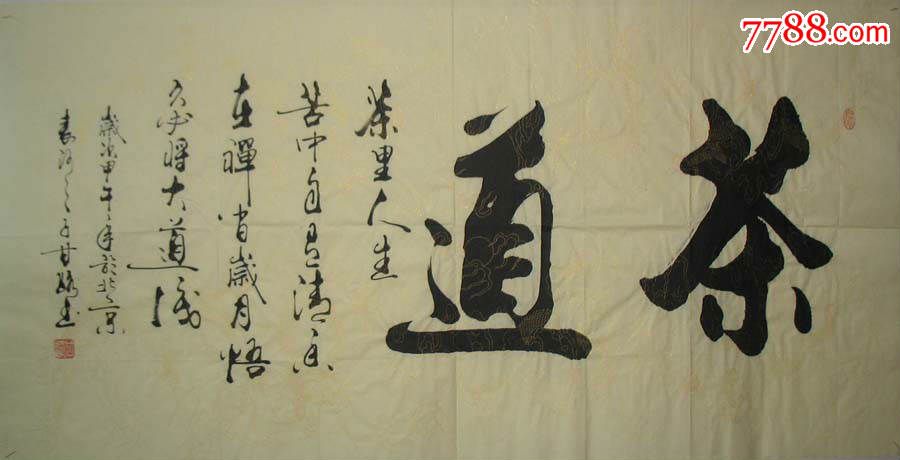 7788.com
茶道
茶里人生
苦中自有清香
在禪宵歲月悟
久必將大道
歲次甲午年於北京
之子甘書